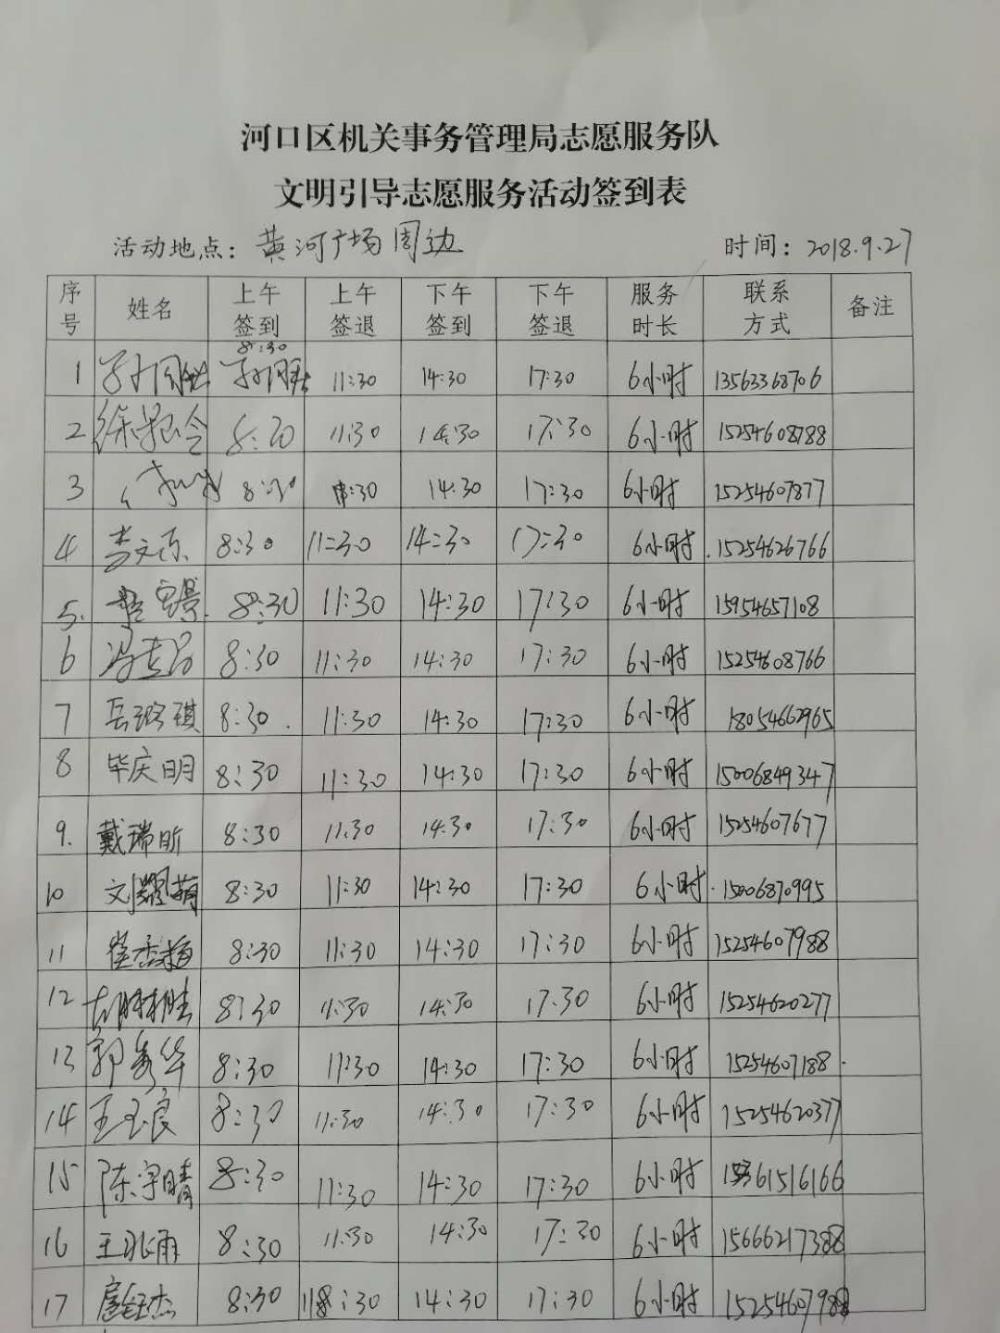 河口区机关事务管理局志愿服务队
文明引导志愿服务活动签到表
活动地点：黄河广场周边 时间：2018.9.27
序号 姓名 上午签到 上午签退 下午签到 下午签退 服务时长 联系方式 备注
1 8:30 11:30 14:30 17:30 6小时 13563368706
2 8:30 11:30 14:30 17:30 6小时 15254608788
3 8:30 11:30 14:30 17:30 6小时 15254607877
4 8:30 11:30 14:30 17:30 6小时 15254626766
5. 8:30 11:30 14:30 17:30 6小时 15954657108
6 8:30 11:30 14:30 17:30 6小时 15254608766
7 岳璐琪 8:30 11:30 14:30 17:30 6小时 18054662965
8 毕庆明 8:30 11:30 14:30 17:30 6小时 15006849347
9. 戴瑞昕 8:30 11:30 14:30 17:30 6小时 15254607677
10 8:30 11:30 14:30 17:30 6小时 15006870995
11 8:30 11:30 14:30 17:30 6小时 15254607988
12 8:30 11:30 14:30 17:30 6小时 15254620277
13 郭秀华 8:30 11:30 14:30 17:30 6小时 15254607188
14 王玉良 8:30 11:30 14:30 17:30 6小时 15254620377
15 陈宇晴 8:30 11:30 14:30 17:30 6小时 61516166
16 王兆雨 8:30 11:30 14:30 17:30 6小时 15666217388
17 8:30 :30 14:30 17:30 6小时 15254607988